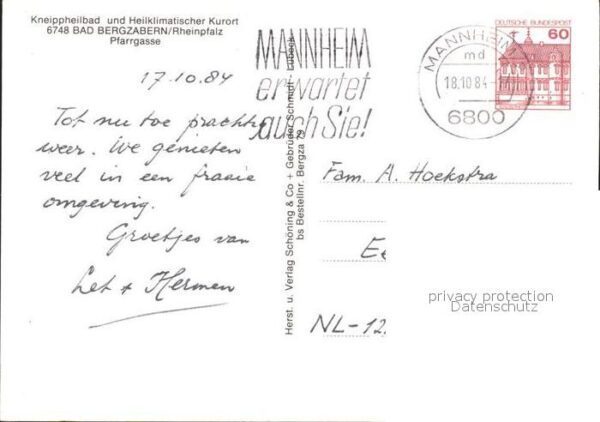 Kneippheilbad und Heilklimatischer Kurort
6748 BAD BERGZABERN/Rheinpfalz
Pfarrgasse
17.10.84
Tot nu toe prachtig
weer. We genieten
veel in een fraaie
omgeving.
Groetjes van
Let + Herman
MANNHEIM
erwartet
auch Sie!
MANNHEIM
md
18.10.84
6800
DEUTSCHE BUNDESPOST
60
Herst. u. Verlag Schöning & Co + Gebrüder Schmidt, Lübeck
bs Bestellnr. Bergza 79
Fam. A. Hoekstra
NL-12
privacy protection
Datenschutz